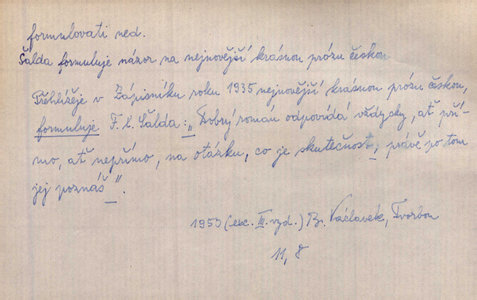 formulovati ned.
Šalda formuluje názor na nejnovější krásnou prózu českou
Přehlížeje v Zápisníku roku 1935 nejnovější krásnou prózu českou,
formuluje F. X. Šalda: „Dobrý román odpovídá vždycky, ať pří-
mo, ať nepřímo, na otázku, co je skutečnost; právě po tom
jej poznáš“.
1953 (exc. III. vyd.) B. Václavek, Tvorbou
11, 8